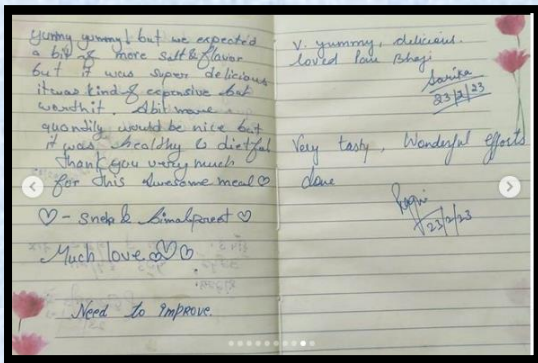 yummy yummy! but we expected
a bit of more salt & flavor
but it was super delicious
it was kind of expensive but
worth it. A bit more
quantity would be nice but
it was healthy & dietful
thank you very much
for this awesome meal ♡
♡ - Sneha & ♡
Much love ♡♡
Need to improve.
V. yummy, delicious.
loved Pav Bhaji
Sarika
23/2/23
Very tasty, Wonderful efforts
done
23/2/23